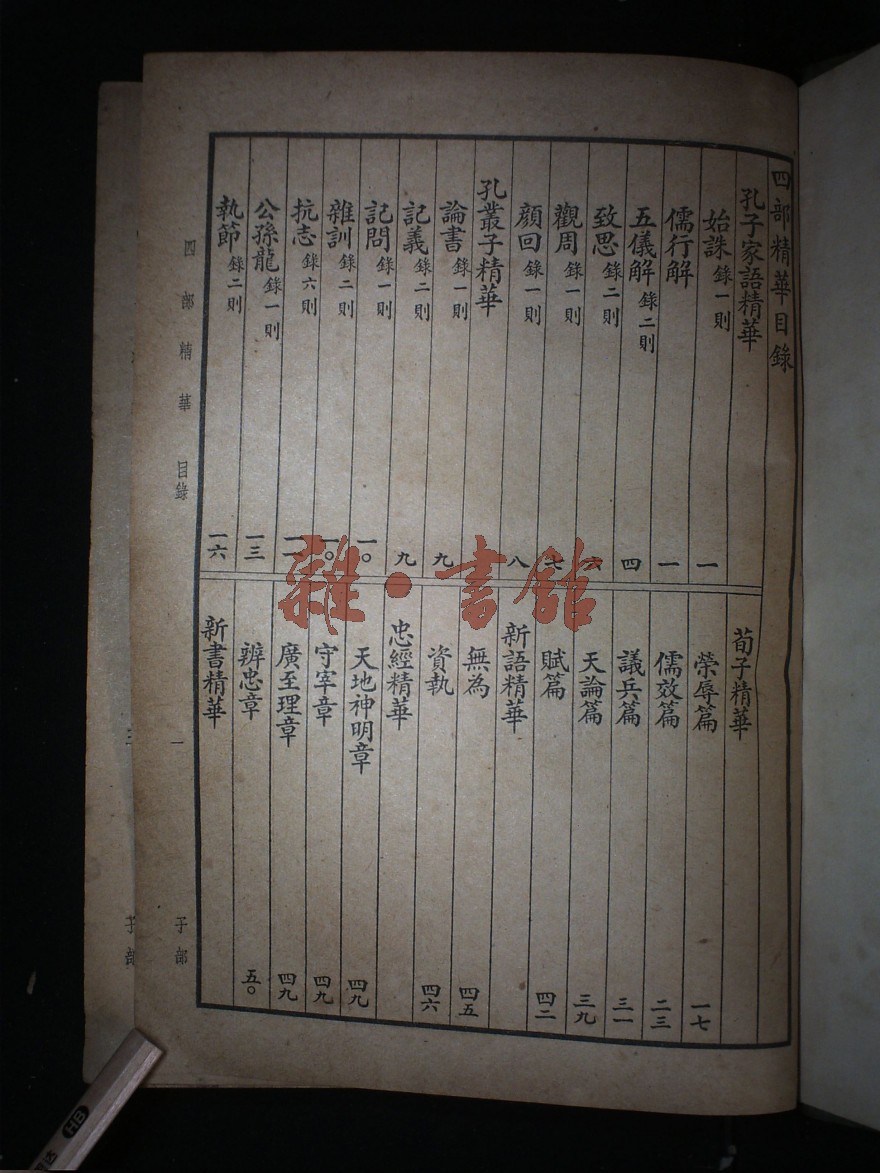 四部精華目錄
孔子家語精華
始誅 錄一則 一
儒行解 一
五儀解 錄二則 四
致思 錄二則 六
觀周 錄一則 七
顏回 錄一則 八
孔叢子精華
論書 錄一則 九
記義 錄二則 九
記問 錄一則 一〇
雜訓 錄二則 一〇
抗志 錄六則 一一
公孫龍 錄一則 一三
執節 錄二則 一六
荀子精華
榮辱篇 一七
儒效篇 二三
議兵篇 三一
天論篇 三九
賦篇 四二
新語精華
無為 四五
資執 四六
忠經精華
天地神明章 四九
守宰章 四九
廣至理章 四九
辨忠章 五〇
新書精華
四部精華 目錄 一 子部
三 子部
雜·書館
HB